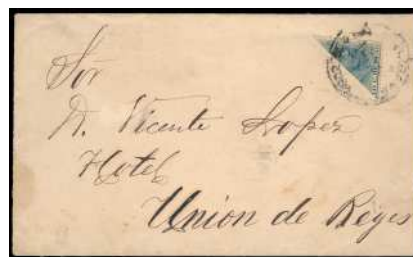 Sor
D. Vicente Lopez
Hotel
Union de Reyes